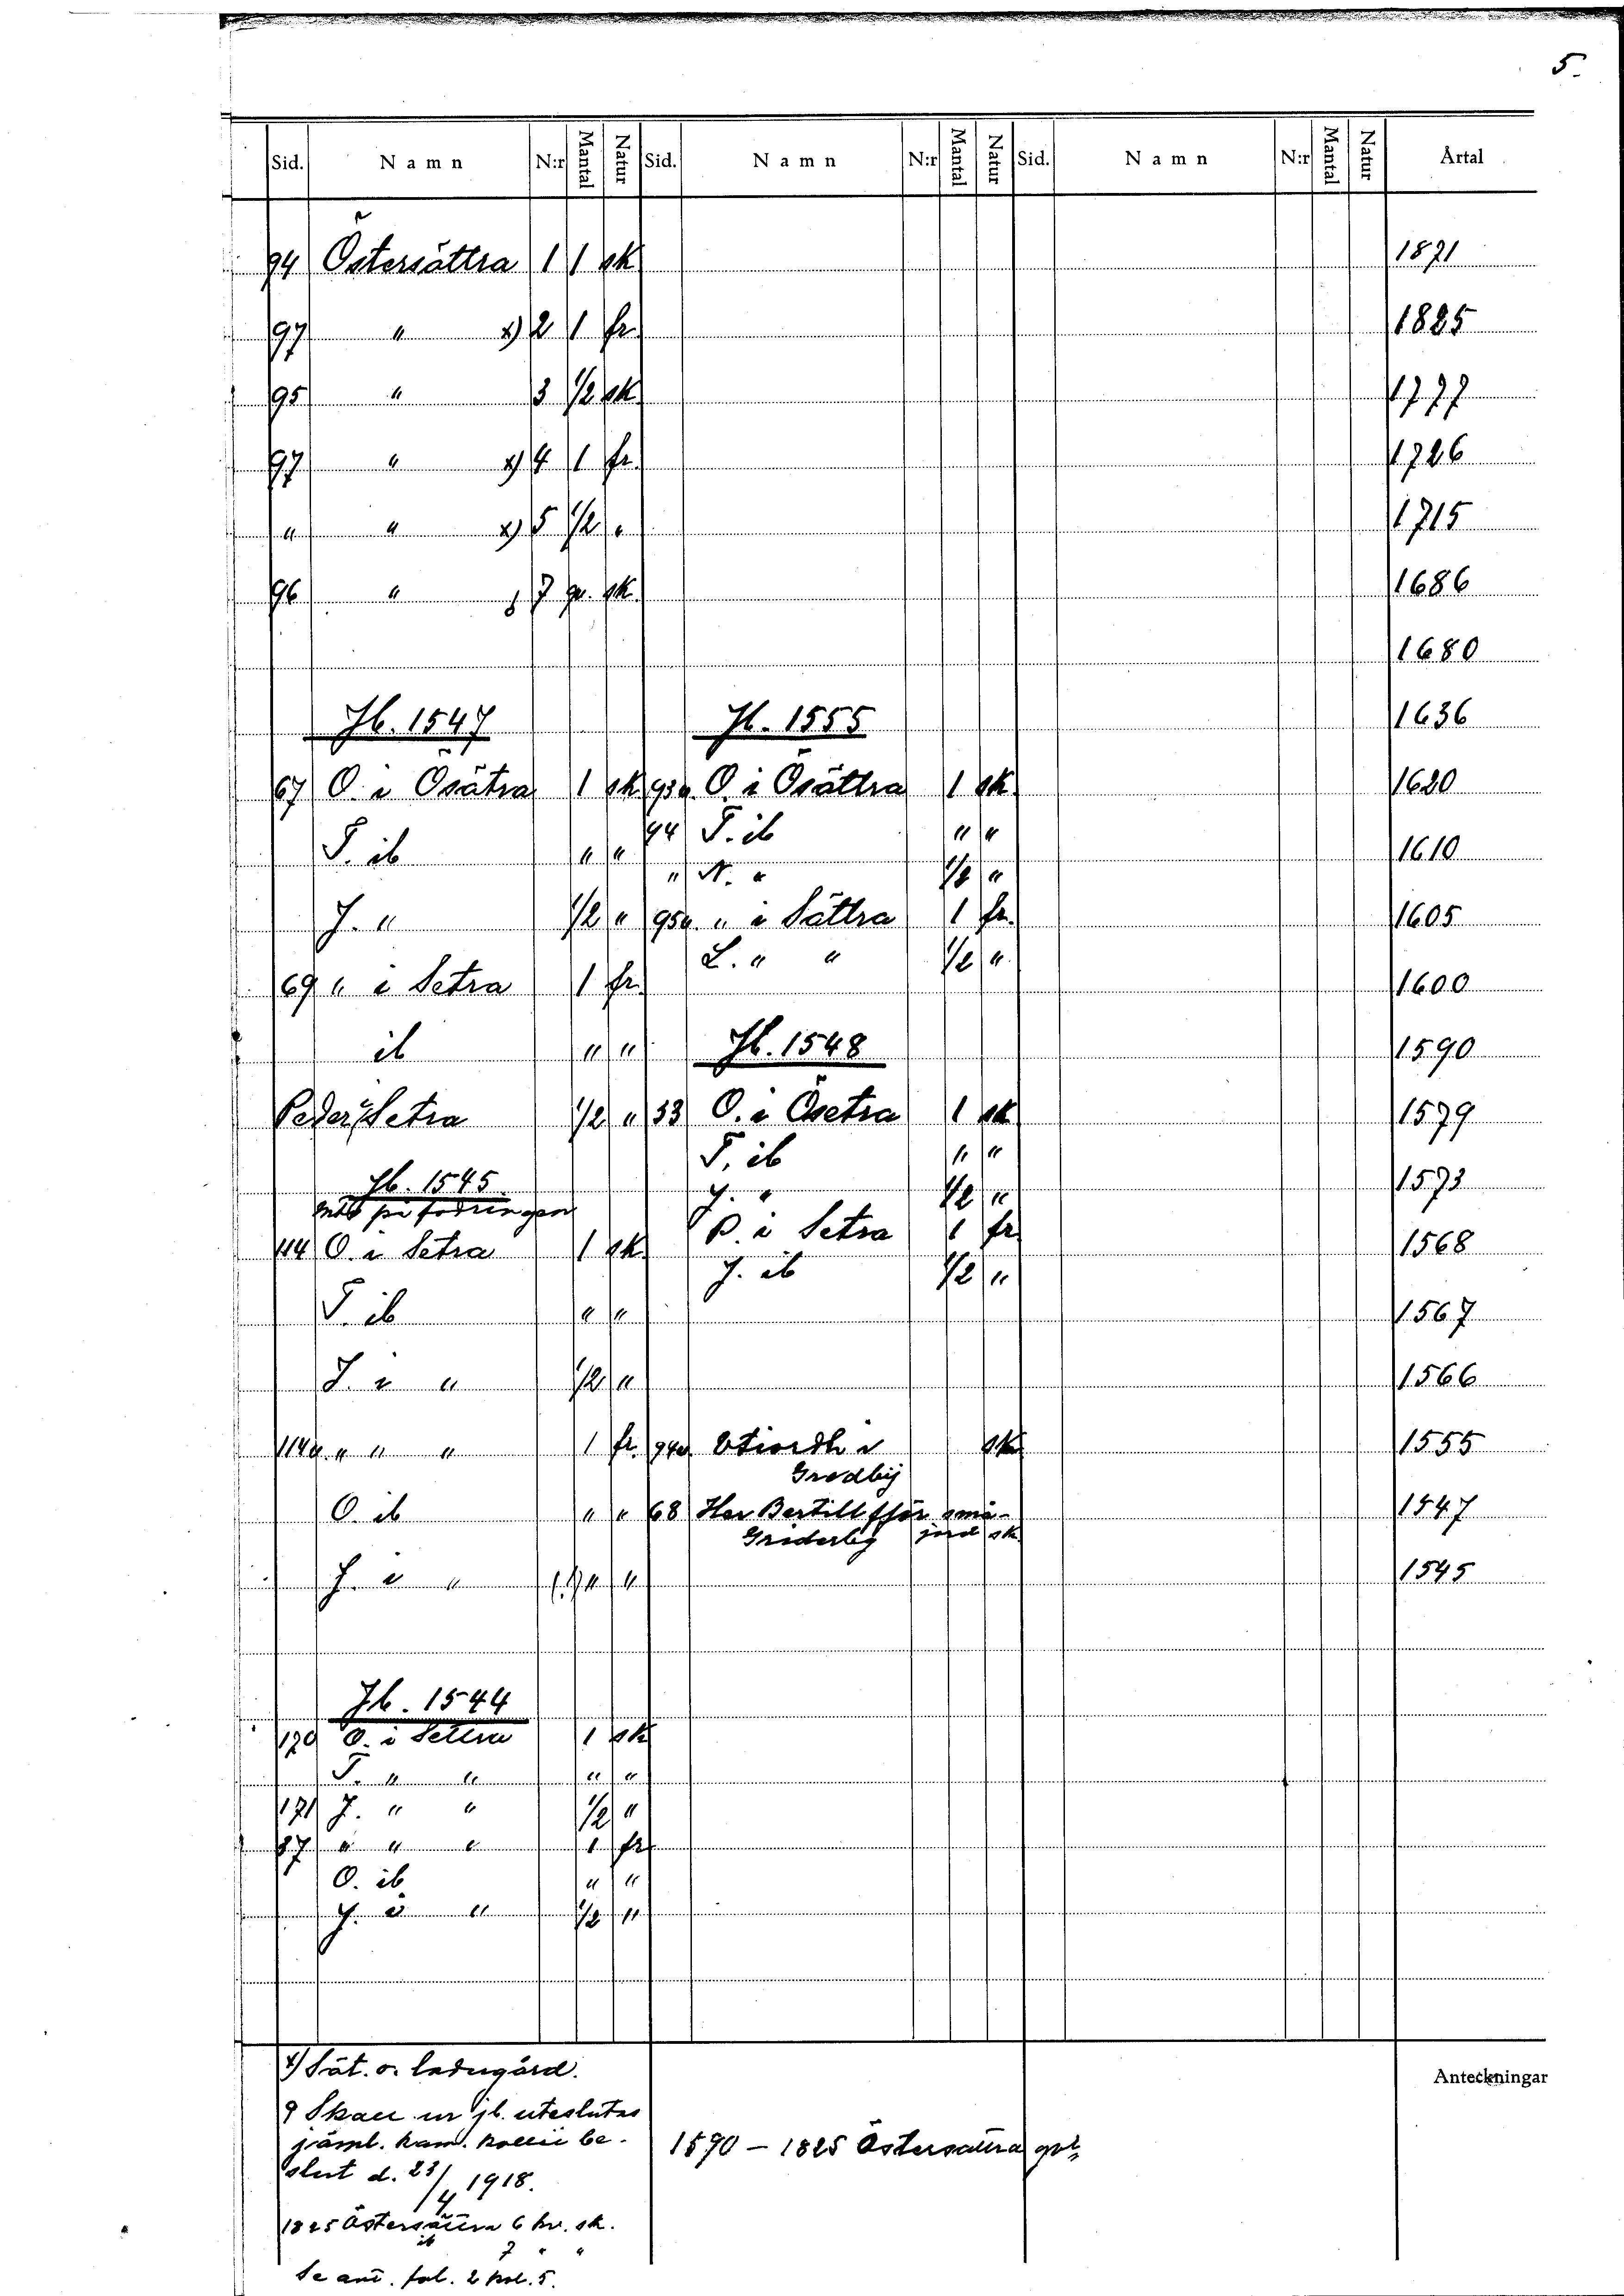 5.
Sid. Namn N:r Mantal Natur Sid. Namn N:r Mantal Natur Sid. Namn N:r Mantal Natur Årtal
94 Östersättra 1 1 sk 1871
97 " x) 2 1 fr. 1825
95 " 3 1/2 sk 1777
97 " x) 4 1 fr. 1726
" " x) 5 1/2 " 1715
96 " 7 qv. sk. 1686
1680
Jb. 1547 Jb. 1555 1636
67 O. i Ösätra 1 sk 93v. O. i Ösättra 1 sk 1620
94 T. ib " "
T. ib " " 1610
" N. " 1/2 "
J. " 1/2 " 95v. " i Sättra 1 fr. 1605
L. " " 1/2 "
69 " i Setra 1 fr. 1600
ib " " Jb. 1548 1590
Peder i Setra 1/2 " 33 O. i Ösetra 1 sk 1579
T. ib " "
Jb. 1545 J. " 1/2 " 1573
på fodringen
P. i Setra 1 fr
114 O. i Setra 1 sk 1568
J. ib 1/2 "
T. ib " " 1567
J. i " 1/2 " 1566
114v " " " 1 fr. 94v. Utiordh i sk 1555
Gredbij
O. ib " " 68 Her Bertill fför små- 1547
Griderby jord sk.
J. i " " " 1545
Jb. 1544
170 O. i Settra 1 sk
T. " " " "
171 J. " " 1/2 "
87 " " " 1 fr
O. ib " "
J. i " 1/2 "
x) Sät. o. ladugård. Anteckningar
Skall ur jb. uteslutas
jäml. kam. kollii be-
slut d. 23/4 1918.
1590 – 1825 Östersättra
1825 Östersättra 6 kr. sk.
ib 7 " "
Se ant. fol. 2 kol. 5.